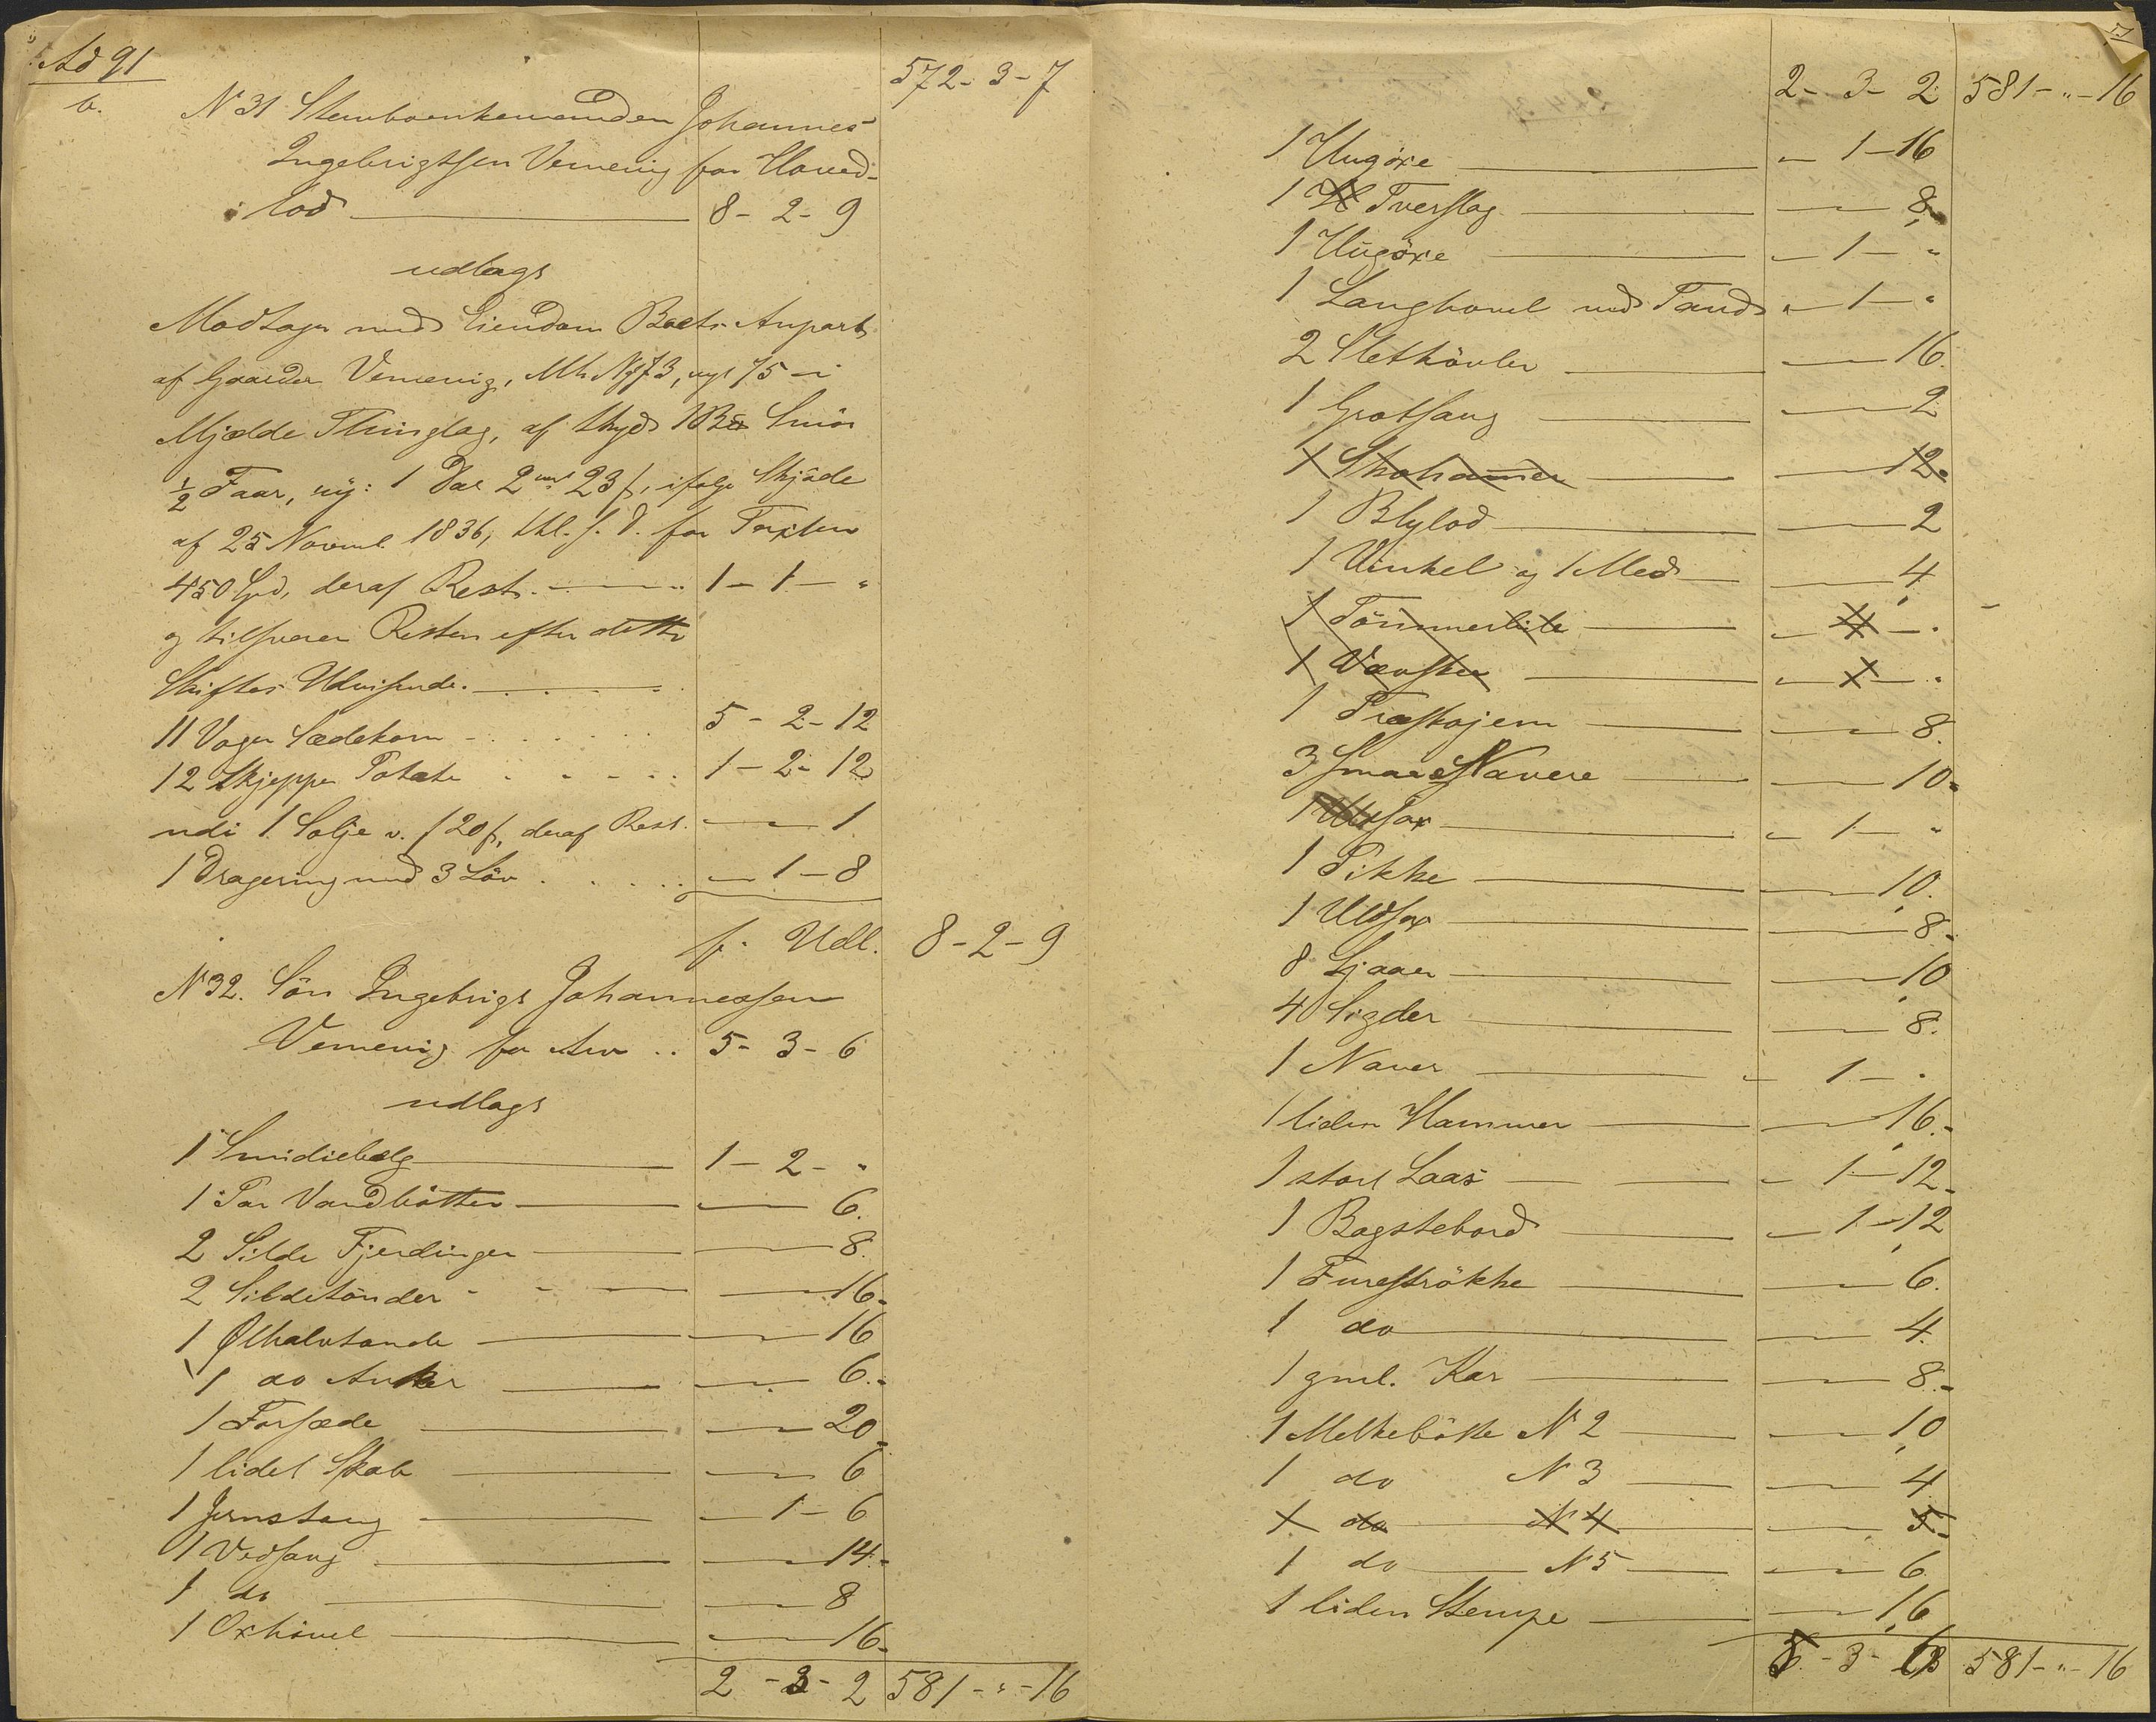 Ad 91
b.
572 - 3 - 7
N 31 Stervboenkemanden Johannes
Ingebrigtsen Vemenig for Hoved-
lod 8 - 2 - 9
udlagt
Modtager med Eiendom Boets Anpart
af Gaarden Vemenig, Mt. N 73, nyt 75 i
Mjelde Thinglag, af Skyld 1 Smör
½ Faar, ny: 1 Dal 2 23 ß, ifølge Skjöde
af 25 Novemb. 1836, for Taxten
450 Spd, deraf Rest. 1 - 1 - "
og tilsvarer Resten efter dette
Skiftes Udvisende.
11 Voger Sædekorn 5 - 2 - 12
12 Skjepper Potete 1 - 2 - 12
udi 1 Solje v. f 20 ß, deraf Rest. 1
1 Dragering med 3 Löv " - 1 - 8
f. Udl. 8 - 2 - 9
N 32. Sön Ingebrigt Johannessen
Vemenig for Arv .. 5 - 3 - 6
udlagt
1 Smidiebelg 1 - 2 - "
1 Par Vandbötter 6.
2 Silde Fjerdinger 8.
2 Sildetönder 16.
1 Ølhalvtønde 16
1 do Anker 6.
1 Forsæde 20
1 lidet Skab 6
1 Jernstang " - 1 - 6
1 Vedsaug 14.
1 do 8
1 Oxhövel 16.
2 - 3 - 2 581 - " - 16
2 - 3 - 2 581 - " - 16
1 Hugöxe " 1 - 16
1 Tverslag 8
1 Hugöxe " - 1 - "
1 Langhovel med Tand " - 1 - "
2 Slethövler 16.
1 Grotsaug 2
1 Skohammer 12.
1 Blylod 2
1 Vinkel og 1 Med 4
1 Tömmerbile
1 Vævskee
1 Præstojern 8.
3 smaae Navere 10.
1 " 1 - "
1 Pikke 10.
1 Uldsax 8.
8 Ljaaer 10
4 Sigder 8.
1 Naver " 1 - "
1 liden Hammer 16.
1 stort Laas " 1 - 12.
1 Bagstebord " 1 - 12
1 Fureströkke 6.
1 do 4.
1 gml. Kar 8.
1 Melkebötte N 2 10
1 do N 3 4
1 do N 4 5
1 do N 5 6
1 liden Stempe 16
5 - 3 - 6 581 - " - 16